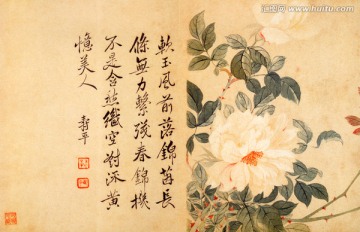 軟玉風前落錦茵長
條無力繫殘春錦機
不是含愁織空對流黃
憶美人
壽平
www.huitu.com